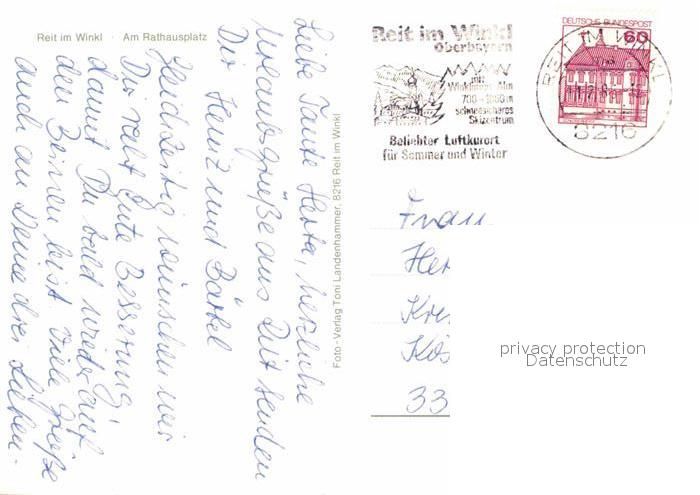 Reit im Winkl · Am Rathausplatz
Liebe Tante Herta, herzliche
Urlaubsgrüße aus Reit senden
Dir Heinz und Bärbel
Gleichzeitig wünschen wir
Dir recht gute Besserung,
damit Du bald wieder auf
den Beinen bist. Viele Grüße
auch an Deine drei Lieben.
Foto - Verlag Toni Landenhammer, 8216 Reit im Winkl
Reit im Winkl
Oberbayern
mit
Winklmoos-Alm
700 - 1800 m
schneesicheres
Skizentrum
Beliebter Luftkurort
für Sommer und Winter
DEUTSCHE BUNDESPOST
60
REIT IM WINKL
8216
Frau
Her
Kre
Kös
33
privacy protection
Datenschutz